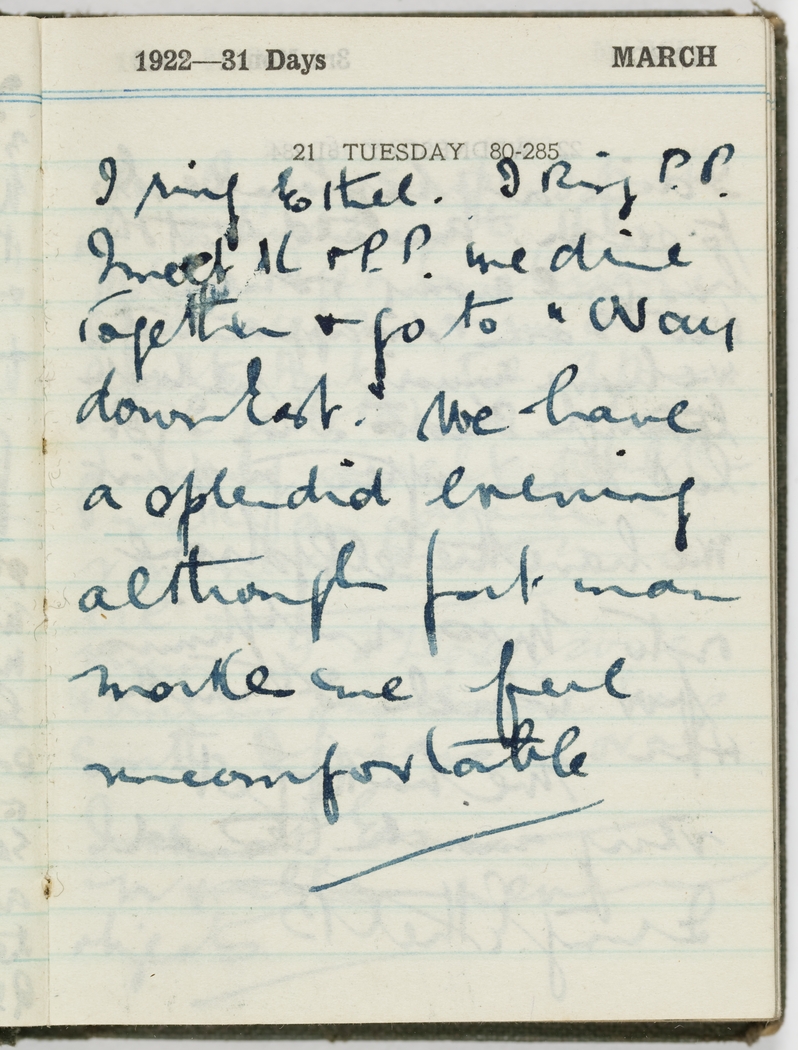 1922—31 Days MARCH
21 TUESDAY 80-285
I ring Ethel. I Ring P.P.
I meet K & P.P. we dine
Together & go to "Way
down East." We have
a splendid evening
although fat man
make me feel
uncomfortable